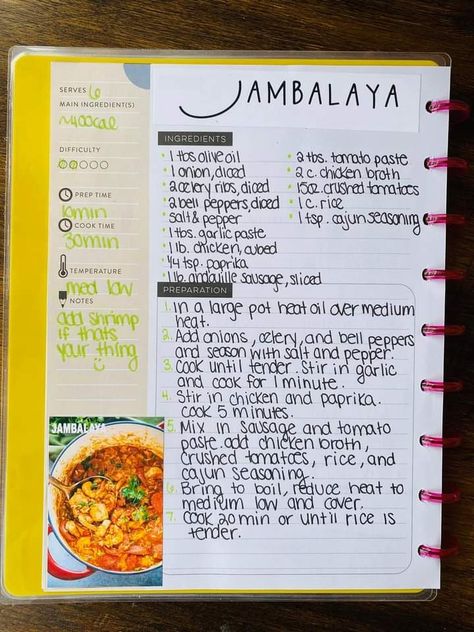 JAMBALAYA
SERVES 6
MAIN INGREDIENT(S)
~400cal
DIFFICULTY
PREP TIME
10min
COOK TIME
30min
TEMPERATURE
med low
NOTES
add shrimp
if thats
your thing
JAMBALAYA
INGREDIENTS
• 1 tbs olive oil
• 1 onion, diced
• 2 celery ribs, diced
• 2 bell peppers, diced
• salt & pepper
• 1 tbs. garlic paste
• 1 lb. chicken, cubed
• 1/4 tsp. paprika
• 1 lb. andouille sausage, sliced
• 2 tbs. tomato paste
• 2 c. chicken broth
• 15oz. crushed tomatoes
• 1 c. rice
• 1 tsp. cajun seasoning
PREPARATION
1. In a large pot heat oil over medium
heat.
2. Add onions, celery, and bell peppers
and season with salt and pepper.
3. Cook until tender. Stir in garlic
and cook for 1 minute.
4. Stir in chicken and paprika.
Cook 5 minutes.
5. Mix in sausage and tomato
paste. add chicken broth,
crushed tomatoes, rice, and
cajun seasoning.
6. Bring to boil, reduce heat to
medium low and cover.
7. Cook 20 min or until rice is
tender.